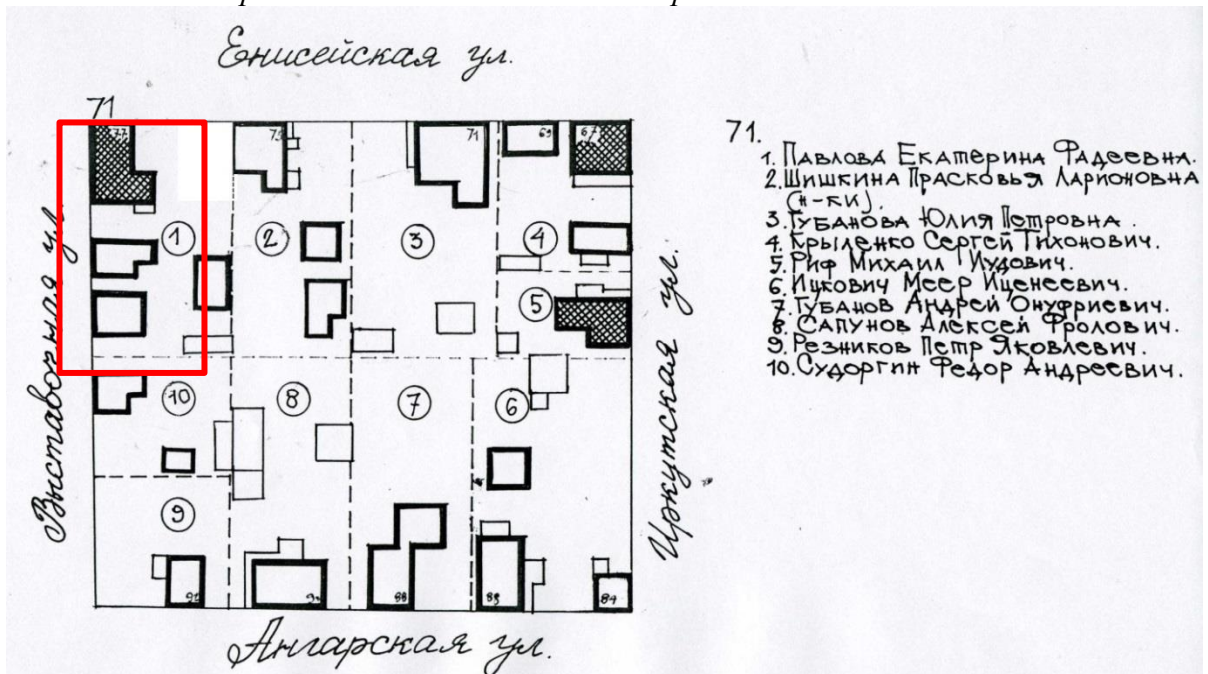 Енисейская ул.
71
77
71
69
67
1
2
3
4
5
10
8
7
6
9
88
84
Выставочная ул.
Иркутская ул.
Ангарская ул.
71.
1. Павлова Екатерина Фадеевна.
2. Шишкина Прасковья Ларионовна
(н-ки).
3. Губанова Юлия Петровна.
4. Крыленко Сергей Тихонович.
5. Риф Михаил Иудович.
6. Ицкович Меер Иценеевич.
7. Губанов Андрей Онуфриевич.
8. Сапунов Алексей Фролович.
9. Резников Петр Яковлевич.
10. Судоргин Федор Андреевич.